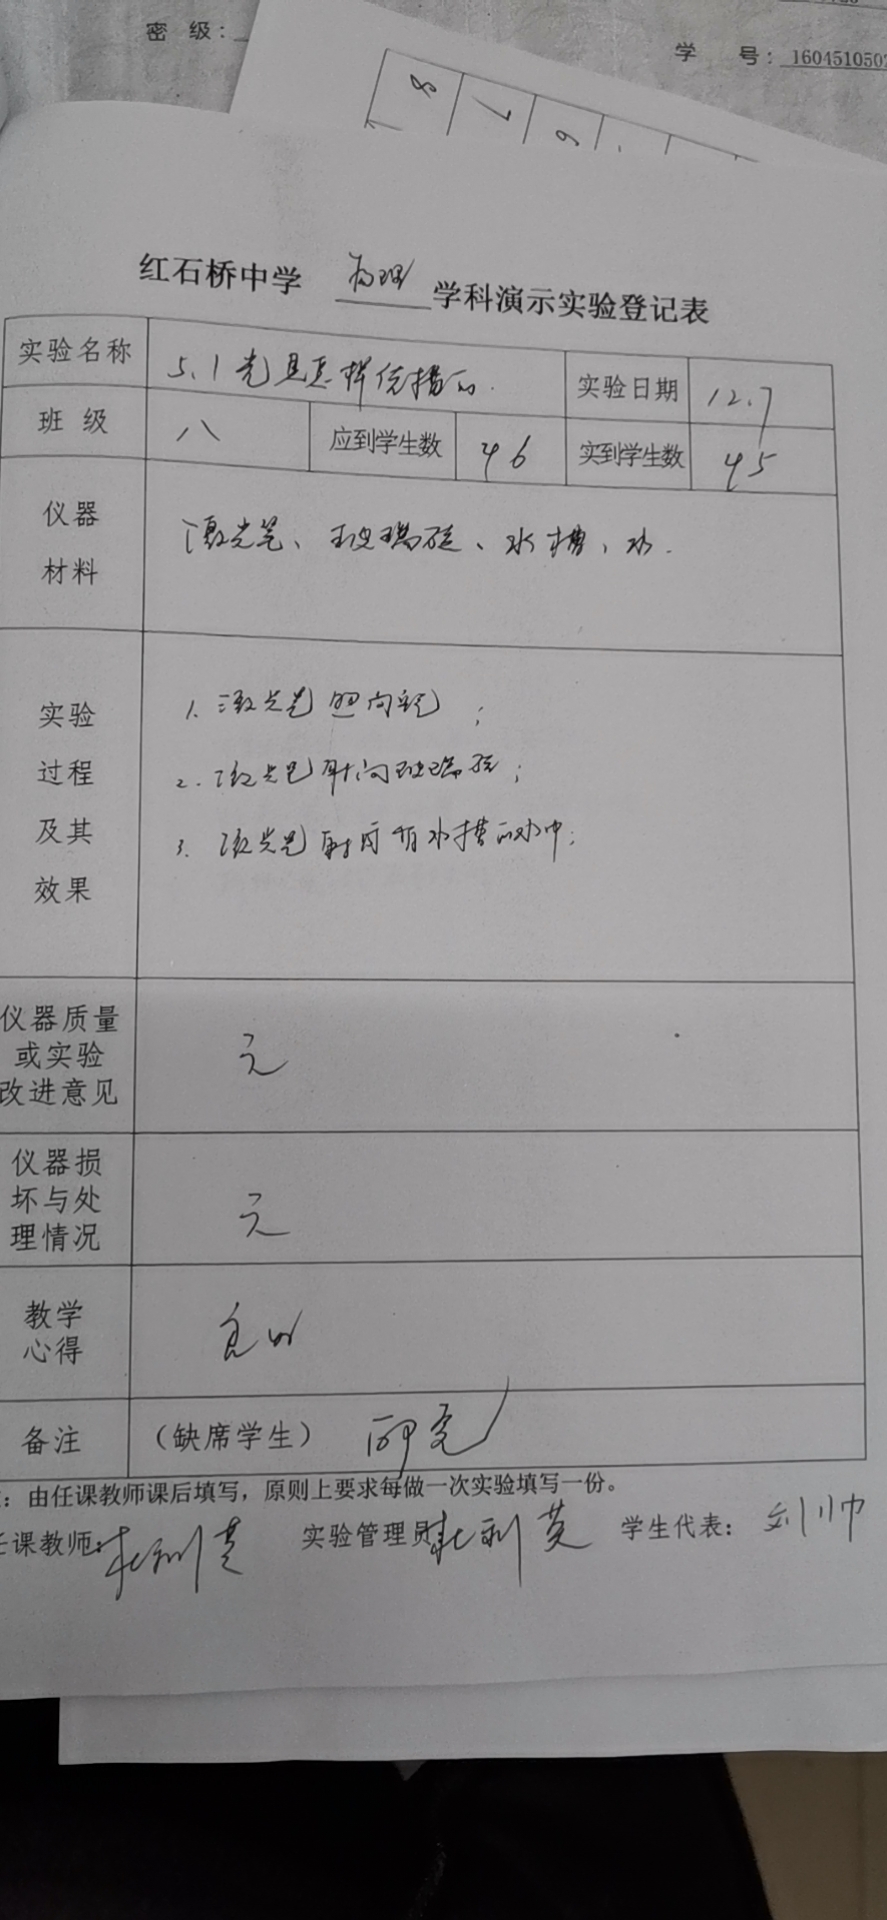 密 级：
学 号：160451050
8 7 6
红石桥中学 物理 学科演示实验登记表
实验名称 5.1光是怎样传播的. 实验日期 12.7
班 级 八 应到学生数 46 实到学生数 45
仪器
材料
激光笔、玻璃砖、水槽、水.
实验
过程
及其
效果
1. 激光笔照向;
2. 激光笔射向玻璃砖;
3. 激光笔射向有水槽的水中;
仪器质量
或实验
改进意见
无
仪器损
坏与处
理情况
无
教学
心得
良好
备注 （缺席学生）
：由任课教师课后填写，原则上要求每做一次实验填写一份。
任课教师： 实验管理员 学生代表：刘帅